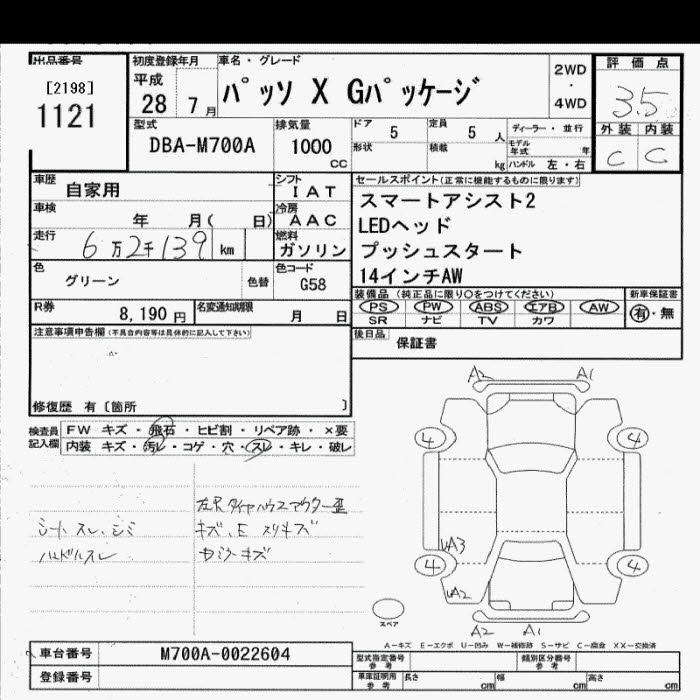 出品番号
[2198]
1121
初度登録年月
平成
28 7月
車名・グレード
パッソ X Gパッケージ
2WD
・
4WD
評価点
3.5
外装 内装
C C
型式
DBA-M700A
排気量
1000
CC
ドア 5
定員 5 人
ディーラー・並行
形状
積載 kg
モデル年式 年
ハンドル 左・右
車歴
自家用
シフト
IAT
車検
年 月( 日)
冷房
AAC
走行
6万2千139 km
燃料
ガソリン
色
グリーン
色替
色コード
G58
R券
8,190 円
名変通知期限
月 日
セールスポイント(正常に機能するものに限ります)
スマートアシスト2
LEDヘッド
プッシュスタート
14インチAW
装備品(純正品に限り○をつけてください)
PS PW ABS エアB AW
SR ナビ TV カワ
新車保証書
有・無
後日品
保証書
注意事項申告欄(不具合内容等は具体的に記入して下さい)
修復歴 有〔箇所 〕
検査員記入欄
FW キズ・飛石・ヒビ割・リペア跡・×要
内装 キズ・汚レ・コゲ・穴・スレ・キレ・破レ
シートスレ、シミ
ハンドルスレ
左Rタイヤハウスアウター歪
キズ、E スリキズ
カミラーキズ
A2 A1
4 4
UA3
4 4
UA2
A2 A1
スペア
A-キズ E-エクボ U-凹み W-補修跡 S-サビ C-腐食 XX-交換済
車台番号
M700A-0022604
登録番号
型式指定番号 参考
類別区分番号 参考
車庫証明用 参考
長さ cm
幅 cm
高さ cm